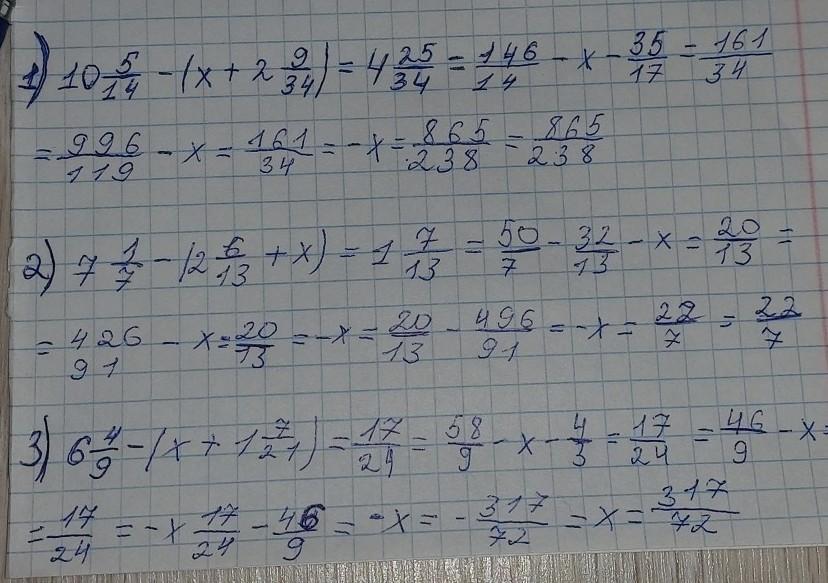 1) 10 5/14 - (x + 2 9/34) = 4 25/34 = 146/14 - x - 35/17 = 161/34
= 996/119 - x = 161/34 = -x = 865/238 = 865/238
2) 7 1/7 - (2 6/13 + x) = 1 7/13 = 50/7 - 32/13 - x = 20/13 =
= 426/91 - x = 20/13 = -x = 20/13 - 496/91 = -x = 22/7 = 22/7
3) 6 4/9 - (x + 1 7/21) = 17/24 = 58/9 - x - 4/3 = 17/24 = 46/9 - x =
= 17/24 = -x 17/24 - 46/9 = -x = - 317/72 = x = 317/72